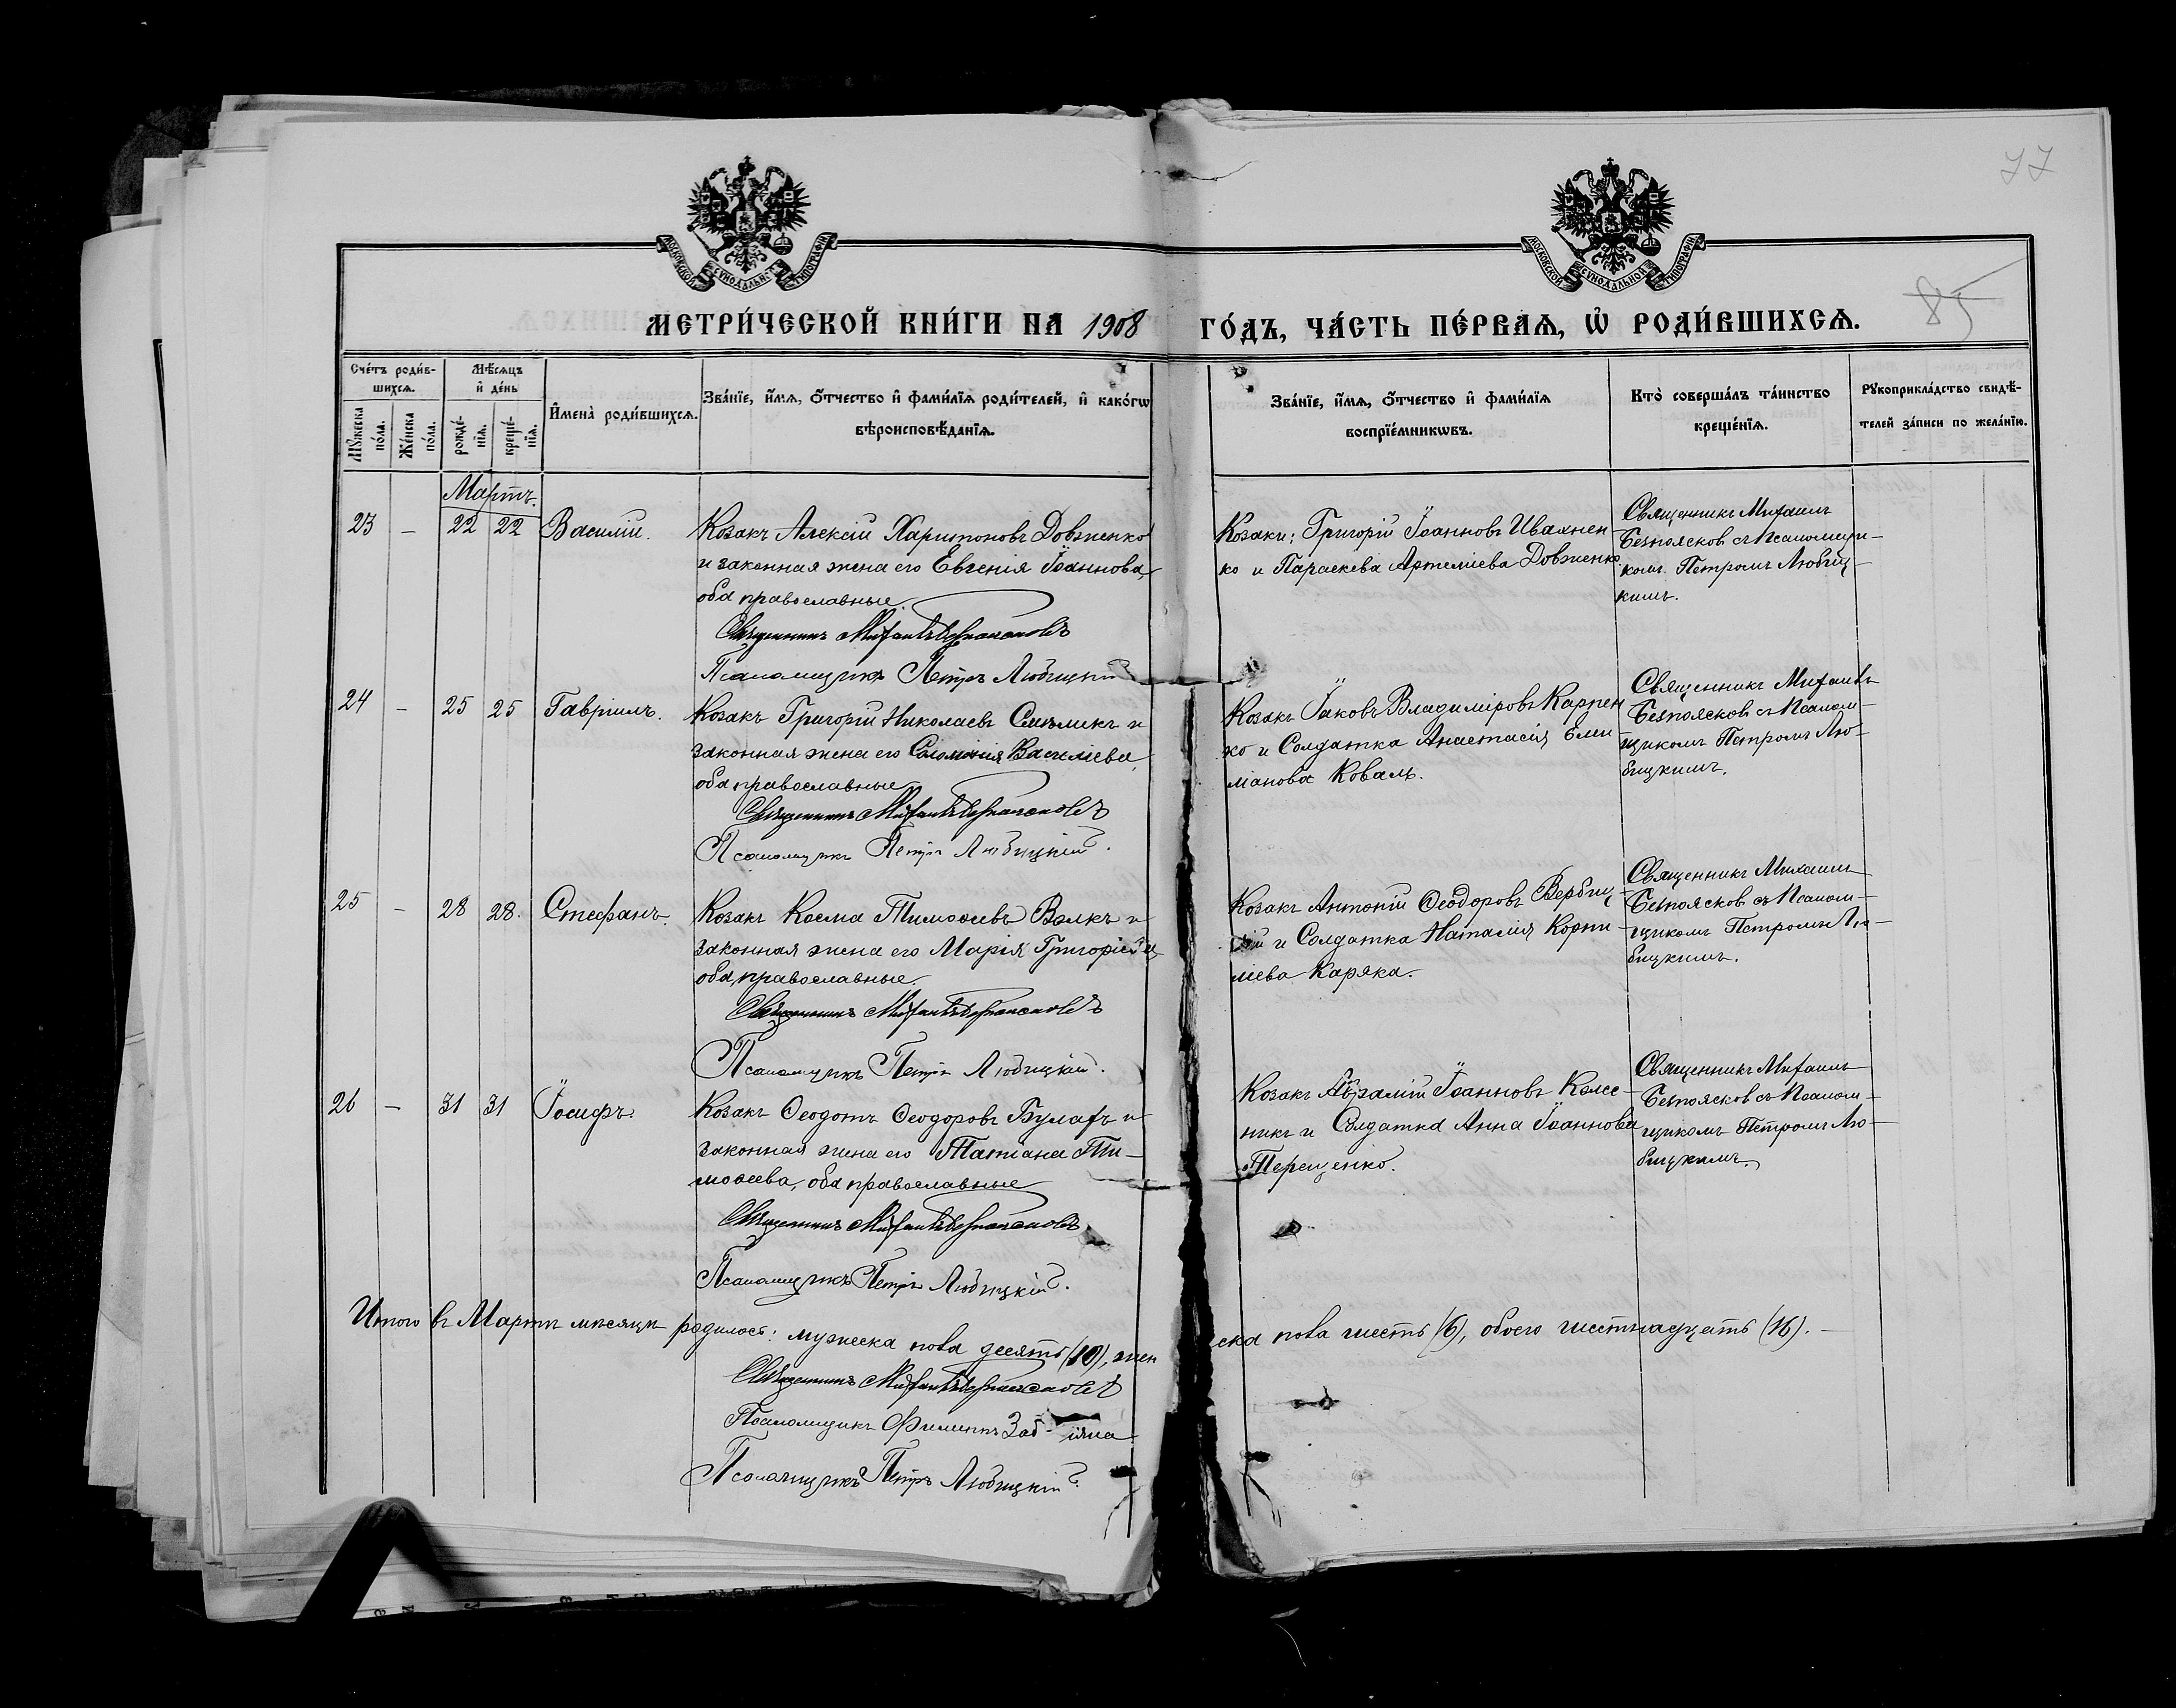 77
МОСКОВСКОЙ СѴНОДАЛЬНОЙ ТИПОГРАФІИ
МОСКОВСКОЙ СѴНОДАЛЬНОЙ ТИПОГРАФІИ
85
МЕТРИ́ЧЕСКОЙ КНИ́ГИ НА 1908 ГО́ДЪ, ЧА́СТЬ ПЕ́РВАѦ, Ѡ҆ РОДИ́ВШИХСѦ.
Сче́тъ роди́в-
шихсѧ.
Мѣ́сѧцъ
и҆ де́нь
Мꙋ́жеска по́ла.
Же́нска по́ла.
рожде́-
нїѧ.
креще́-
нїѧ.
И҆мена̀ роди́вшихсѧ.
Зва́нїе, и҆́мѧ, ѻ҆́тчество и҆ фами́лїѧ роди́телей, и҆ како́гѡ
вѣроисповѣ́данїѧ.
Зва́нїе, и҆́мѧ, ѻ҆́тчество и҆ фами́лїѧ
воспрїе́мникѡвъ.
Кто̀ соверша́лъ та́инство
креще́нїѧ.
Рꙋкоприкла́дство свидѣ́-
телей за́писи по жела́нїю.
Мартъ.
23 — 22 22 Василій.
Козакъ Алексій Харитоновъ Довженко
и законная жена его Евгенія Іоаннова,
оба православные.
Священникъ Михаилъ Безпоясковъ
Псаломщикъ Петръ Любицкій
Козаки: Григорій Іоанновъ Ивахнен-
ко и Параскева Артеміева Довженко.
Священникъ Михаилъ
Безпоясковъ съ Псаломщи-
комъ Петромъ Любиц-
кимъ.
24 — 25 25 Гавріилъ.
Козакъ Григорій Николаевъ и
законная жена его Соломонія Васильева,
оба православные
Священникъ Михаилъ Безпоясковъ
Псаломщикъ Петръ Любицкій.
Козакъ Іаковъ Владиміровъ Карпен
ко и Солдатка Анастасія Еми
ліанова Коваль.
Священникъ Михаилъ
Безпоясковъ съ Псалом-
щикомъ Петромъ Лю-
бицкимъ.
25 — 28 28. Стефанъ.
Козакъ Косма Тимоѳеевъ Волкъ и
законная жена его Марія Григоріева
оба православные.
Священникъ Михаилъ Безпоясковъ
Псаломщикъ Петръ Любицкій.
Козакъ Антоній Ѳеодоровъ Вербиц-
кій и Солдатка Наталія Корни-
ліева Каряка.
Священникъ Михаилъ
Безпоясковъ съ Псалом-
щикомъ Петромъ Лю-
бицкимъ.
26 — 31 31 Іосифъ.
Козакъ Ѳеодотъ Ѳеодоровъ Булахъ и
законная жена его Татіана Ти-
моѳеева, оба православные
Священникъ Михаилъ Безпоясковъ
Псаломщикъ Петръ Любицкій.
Козакъ Іоанновъ Колес-
никъ и Солдатка Анна Іоаннова
Терещенко.
Священникъ Михаилъ
Безпоясковъ съ Псалом-
щикомъ Петромъ Лю-
бицкимъ.
Итого въ Мартѣ мѣсяцѣ родилось: мужеска пола десять (10), жен ска пола шесть (6), обоего шестнадцать (16). —
Священникъ Михаилъ Безпоясковъ
Псаломщикъ Филиппъ
Псаломщикъ Петръ Любицкій.